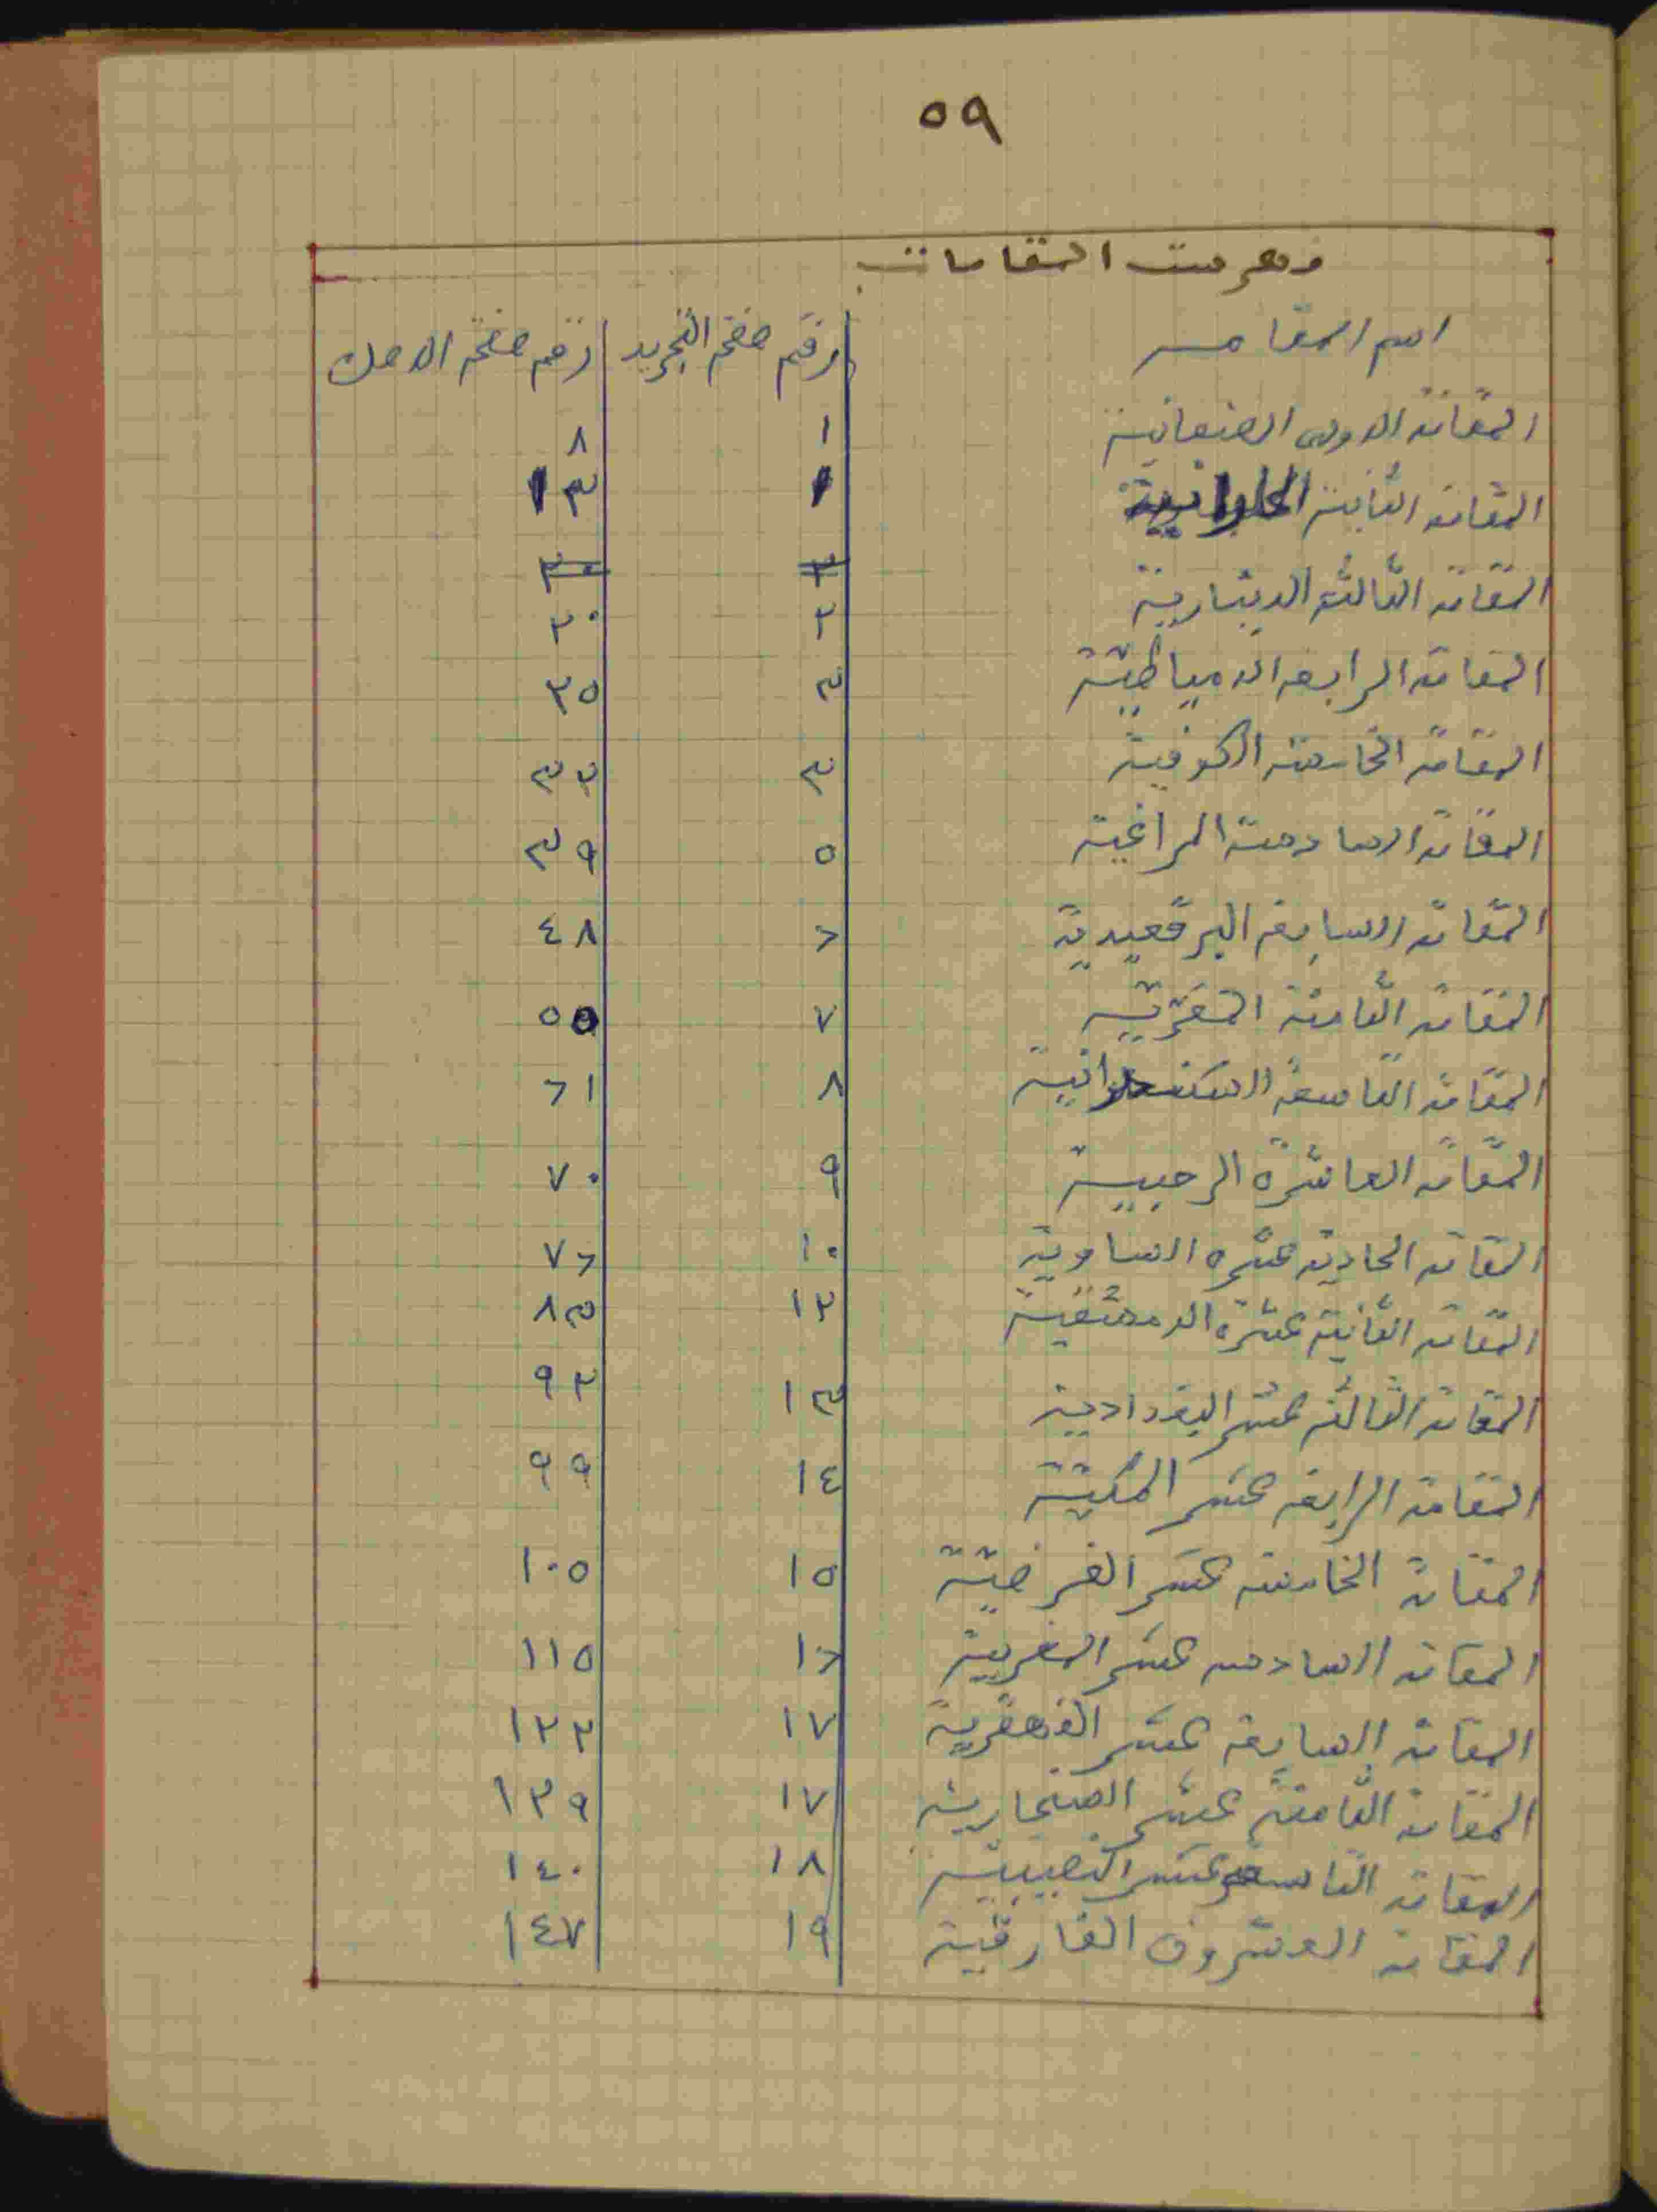 ٥٩
فهرست المقامات
اسم المقامه رقم صفحة التجريد رقم صفحة الاصل
المقامة الاولى الصنعانية ١ ٨
المقامة الثانية الحلوانية ١ ١٣
٢ ٢٠
المقامة الثالثة الدينارية ٢ ٢٠
المقامة الرابعة الدمياطية ٣ ٢٥
المقامة الخامسة الكوفية ٣ ٣٢
المقامة السادسة المراغية ٥ ٣٩
المقامة السابعة البرقعيدية ٦ ٤٨
المقامة الثامنة المعرية ٧ ٥٥
المقامة التاسعة السكندرانية ٨ ٦١
المقامة العاشرة الرحبية ٩ ٧٠
المقامة الحادية عشره الساوية ١٠ ٧٦
المقامة الثانية عشرة الدمشقية ١٢ ٨٣
المقامة الثالثة عشر البغدادية ١٣ ٩٢
المقامة الرابعة عشر المكية ١٤ ٩٩
المقامة الخامسة عشر الفرضية ١٥ ١٠٥
المقامة السادسه عشر المغربية ١٦ ١١٥
المقامة السابعة عشر القهقرية ١٧ ١٢٢
المقامة الثامنة عشر السنجارية ١٧ ١٢٩
المقامة التاسعة عشر النصيبية ١٨ ١٤٠
المقامة العشرون الفارقية ١٩ ١٤٧